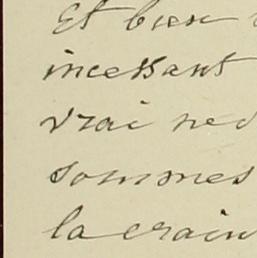 Et bien
incessant
vrai ne
sommes
la crain